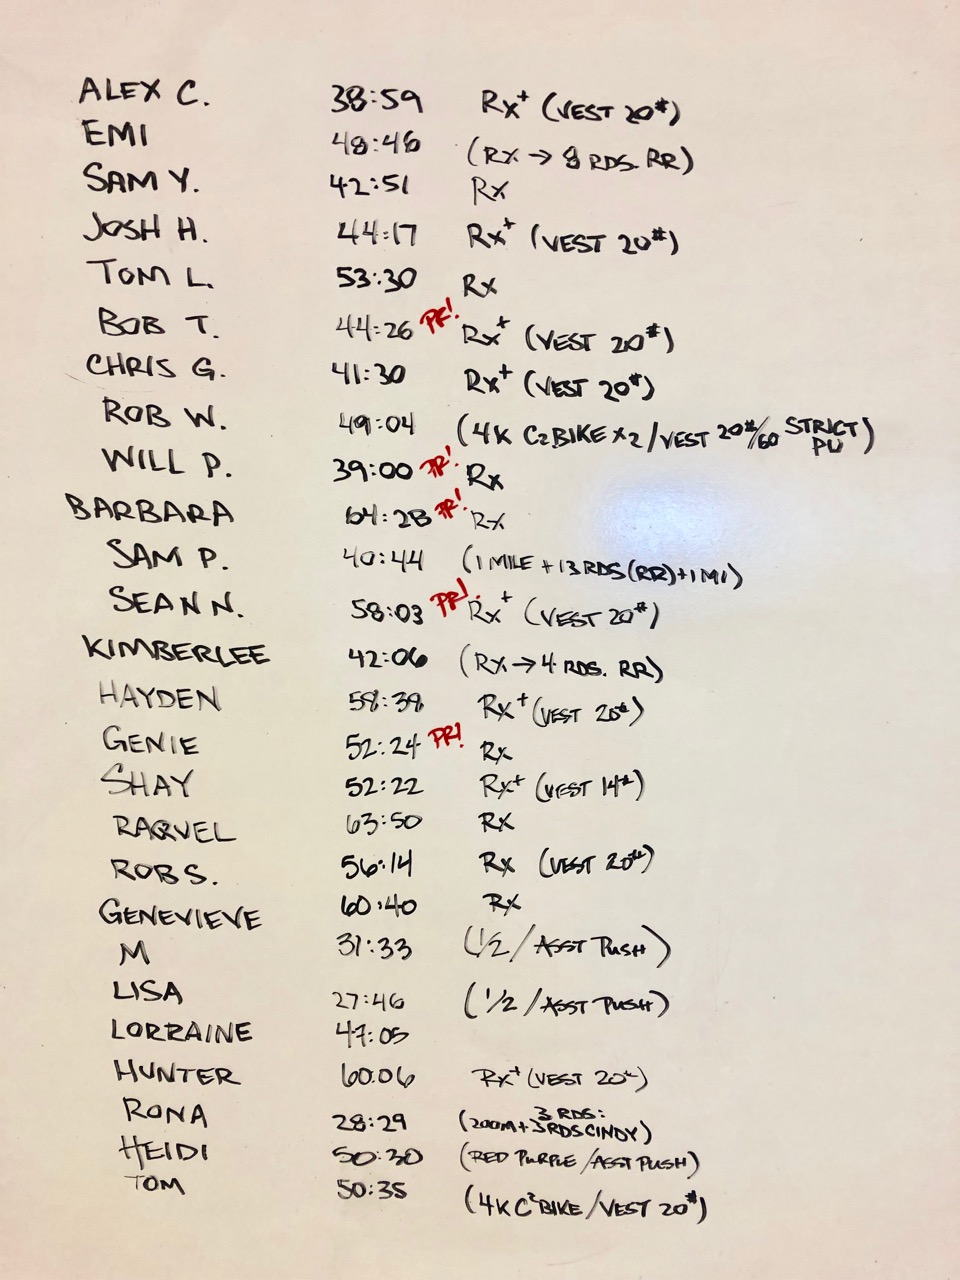 ALEX C. 38:59 Rx+ (VEST 20#)
EMI 48:46 (Rx → 8 RDS. RR)
SAM Y. 42:51 Rx
JOSH H. 44:17 Rx+ (VEST 20#)
TOM L. 53:30 Rx
BOB T. 44:26 PR! Rx+ (VEST 20#)
CHRIS G. 41:30 Rx+ (VEST 20#)
ROB W. 49:04 (4K C2 BIKE x 2 / VEST 20#/60 STRICT PU)
WILL P. 39:00 PR! Rx
BARBARA 64:28 PR! Rx
SAM P. 40:44 (1 MILE + 13 RDS (RR) + 1 MI)
SEAN N. 58:03 PR! Rx+ (VEST 20#)
KIMBERLEE 42:06 (Rx → 4 RDS. RR)
HAYDEN 58:38 Rx+ (VEST 20#)
GENIE 52:24 PR! Rx
SHAY 52:22 Rx+ (VEST 14#)
RAQUEL 63:50 Rx
ROB S. 56:14 Rx (VEST 20#)
GENEVIEVE 60:40 Rx
M 31:33 (1/2 / ASST PUSH)
LISA 27:46 (1/2 / ASST PUSH)
LORRAINE 47:05
HUNTER 60:06 Rx+ (VEST 20#)
RONA 28:29 (3 RDS: 200M + 3 RDS CINDY)
HEIDI 50:30 (RED PURPLE / ASST PUSH)
TOM 50:35 (4K C2 BIKE / VEST 20#)